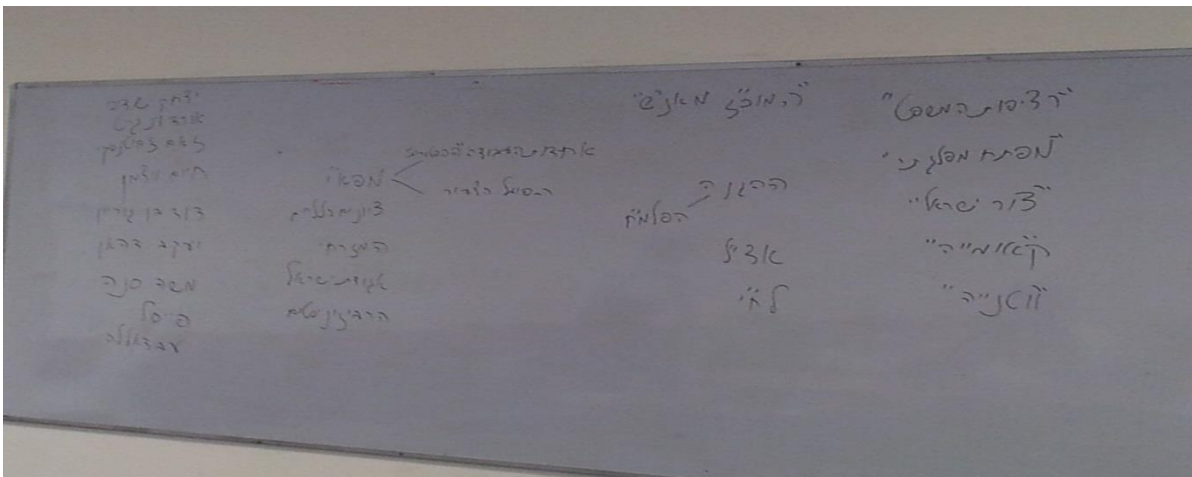 "רציפות המשפט"
"מפתח מפלגתי"
"צור ישראל"
"קאומייה"
"ווטנייה"
"המוכ"ז מאנ"ש"
ההגנה
הפלמ"ח
אצ"ל
לח"י
אחדות העבודה
מפא"י
הפועל הצעיר
ציונים כללים
המזרחי
אגודת ישראל
הרביזיוניסטים
יצחק שדה
אורד וינגייט
חיים ויצמן
דוד בן גוריון
יעקב דהאן
משה סנה
פייסל
עבדאללה